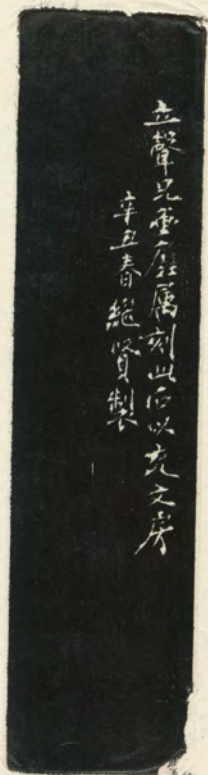 立聲兄重屬刻此石以充文房
辛丑春繼賢製